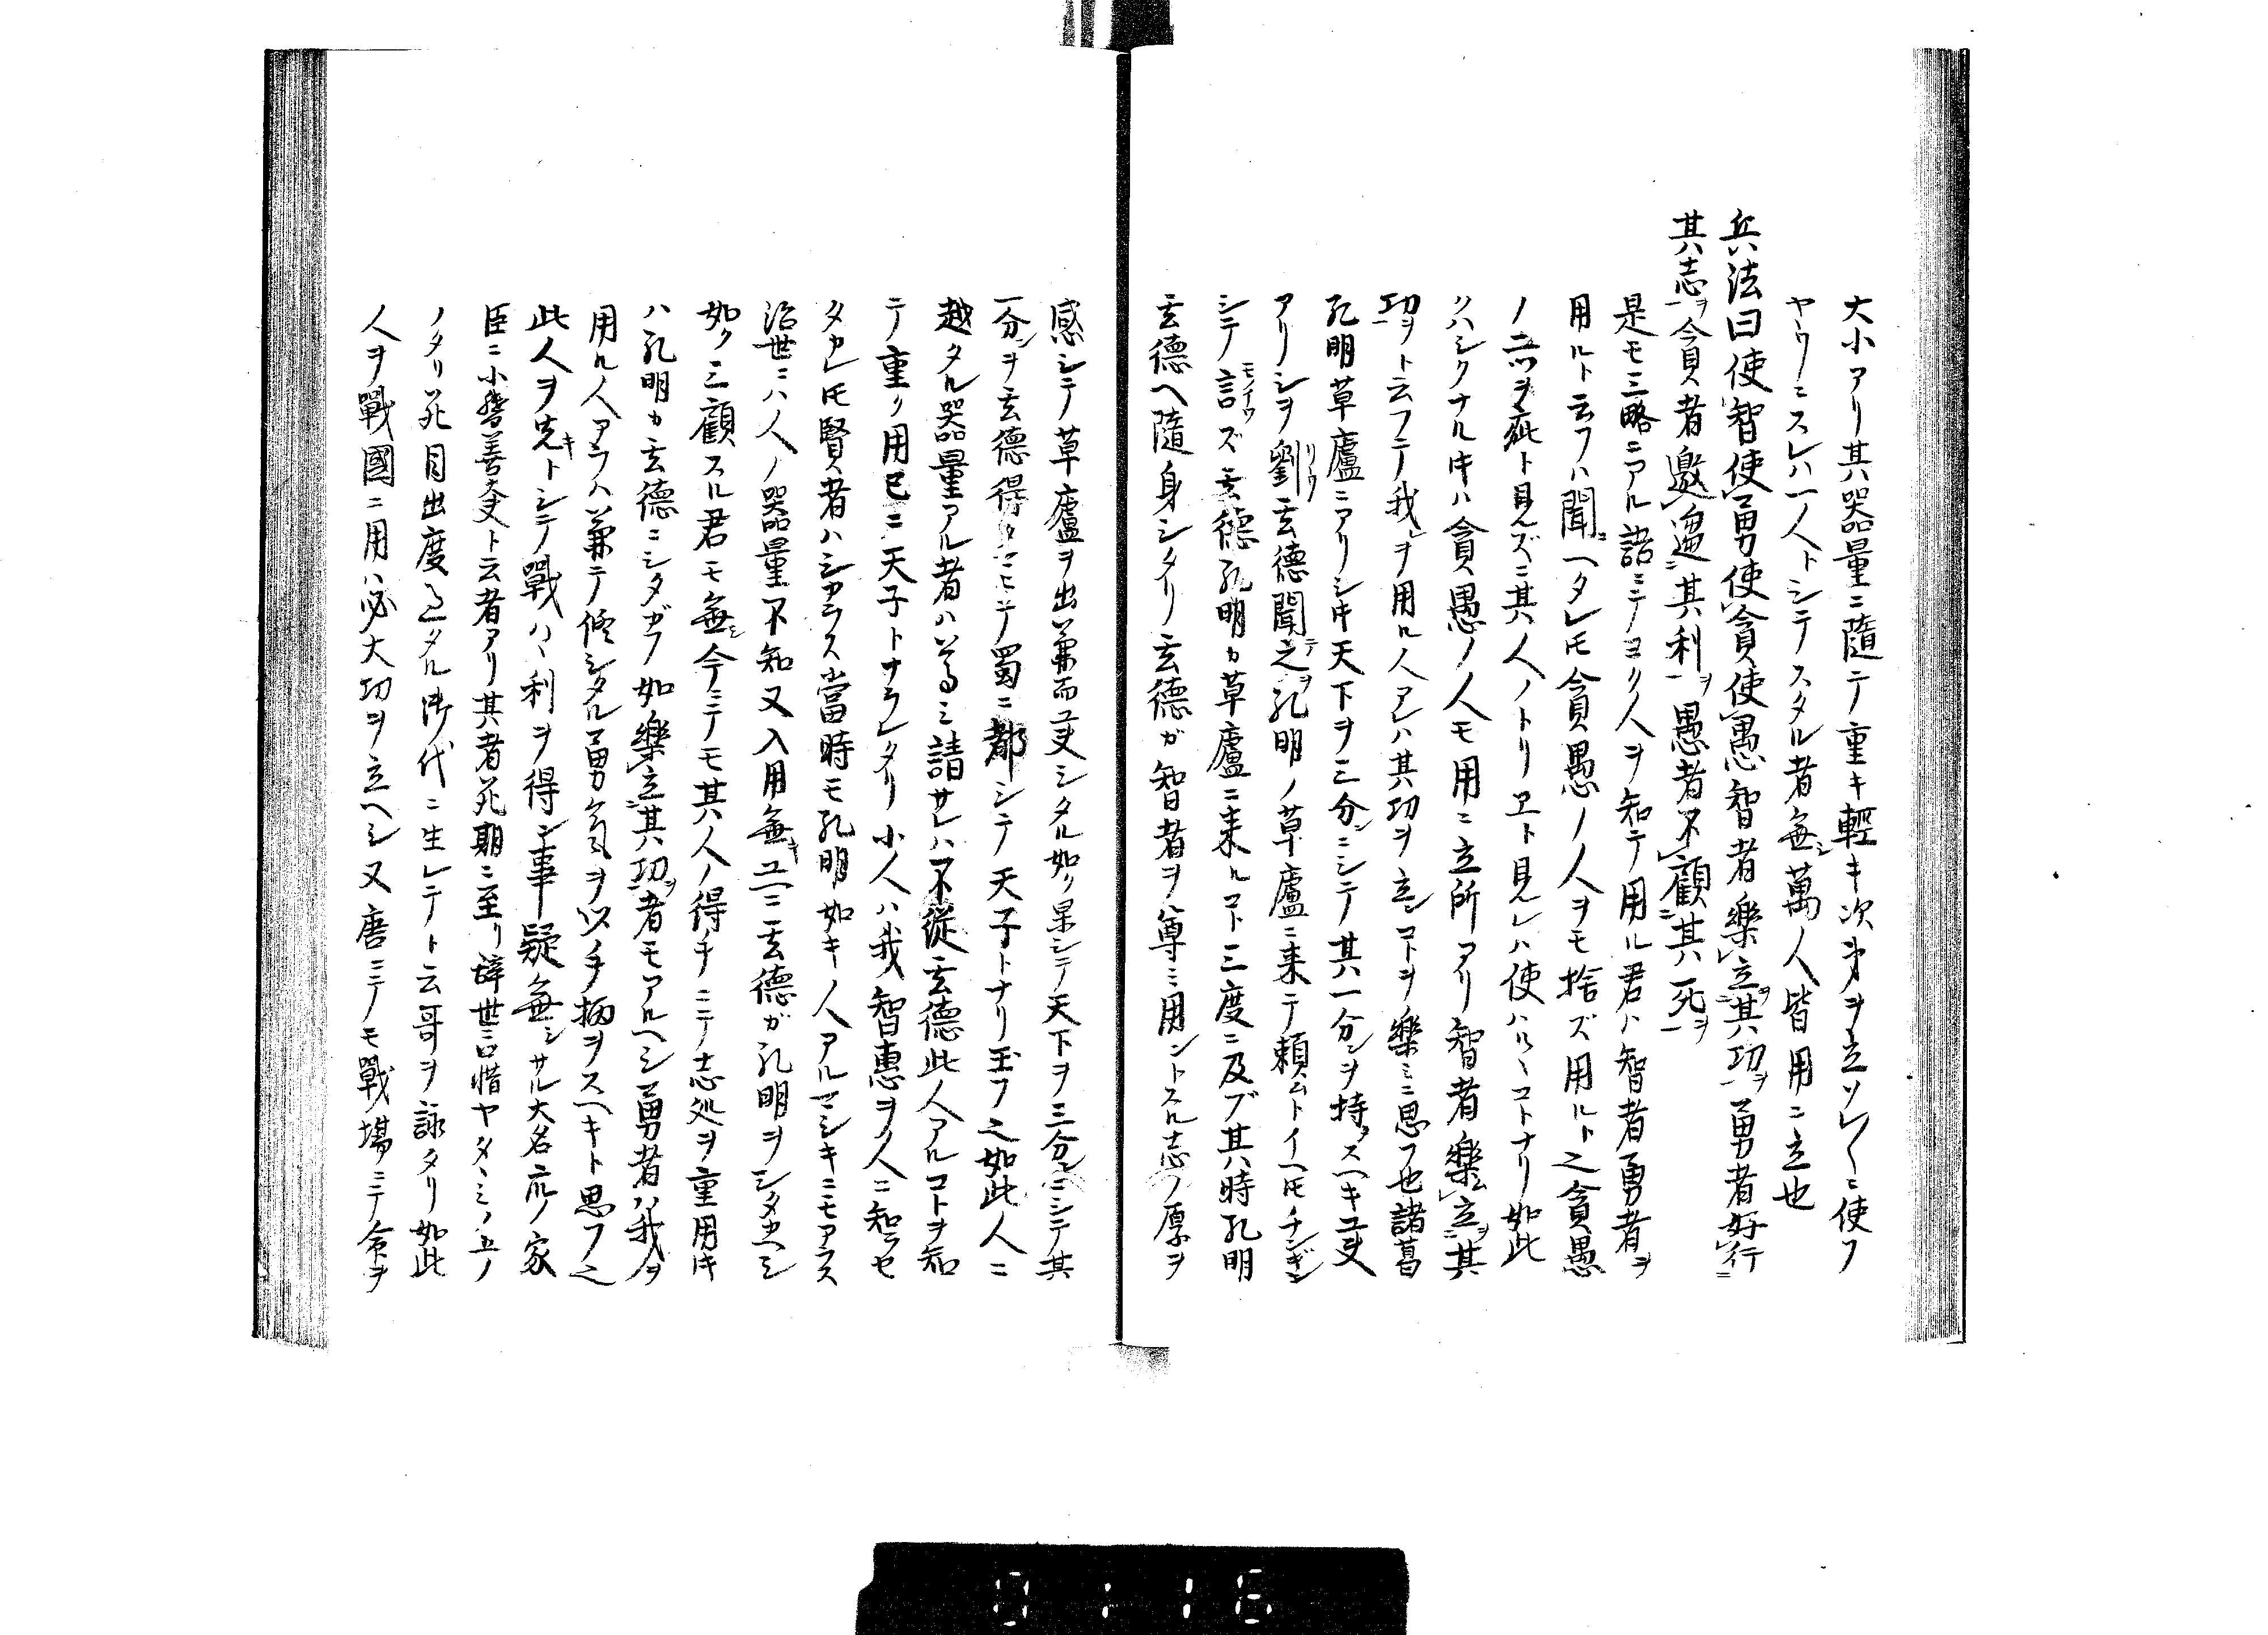 大小アリ其器量ニ随テ重キ輕キ次第ヲ立ソレ〱ニ使フ
ヤウニスレハ一人トシテスタル者無シ萬人皆用ニ立也
兵法曰使智使勇使貪使愚智者樂立其功ヲ勇者好行
其志ヲ貪者邀邉其利ヲ愚者不顧其死ヲ
是モ三略ニアル語ニテヨク人ヲ知テ用ル君ハ智者勇者ヲ
用ルト云フハ聞ヘタレ𪜈貪愚ノ人ヲモ捨ズ用ルト之貪愚
ノ心ヲ疵ト見ズニ其人ノトリヱト見レハ使ハルヽコトナリ如此
クハシクナル𪜈ハ貪愚ノ人モ用ニ立所アリ智者樂立其
功ヲト云フテ我ヲ用ル人アレハ其功ヲ立ンコトヲ樂ミニ思フ也諸葛
孔明草廬ニアリシ𪜈天下ヲ三分ニシテ其一分ヲ持ツスヘキ叓
アリシヲ劉リウ玄德聞之ヲ孔明ノ草廬ニ来テ頼ムトイヘ𪜈チンギン
シテ言モノイワズ玄德孔明カ草廬ニ来ルコト三度ニ及ブ其時孔明
玄德ヘ隨身シタリ玄德ガ智者ヲ尊ミ用ントスル志ノ厚ヲ
感シテ草廬ヲ出兼而叓シタル如ク果シテ天下ヲ三分ニシテ其
一分ヲ玄德得タマヒテ蜀ニ都シテ天子トナリ玉フ之如此人ニ
越タル器量アル者ハ尊ミ請サレハ不従玄德此人アルコトヲ知
テ重ク用已ニ天子トナラレタリ小人ハ我智惠ヲ人ニ知ラセ
タカレ𪜈賢者ハシカラス當時モ孔明如キノ人アルマシキニモアラス
治世ニハ人ノ器量不知又入用無キユヱニ玄德ガ孔明ヲシタヘシ
如ク三顧スル君モ無シ今ニテモ其人ノ得手ニテ志処ヲ重用𪜈
ハ孔明カ玄德ニシタガフ如樂立其功ヲ者モアルヘシ勇者ハ我ヲ
用ル人アラハ兼テ修シタル勇氣ヲ以手柄ヲスヘキト思フ之
此人ヲ先キトシテ戰ハヽ利ヲ得ン事疑無シサル大名ノ家
臣ニ小磐善太夫ト云者アリ其者死期ニ至リ辞世ニ口惜ヤタヽミノ上ノ
ノタリ死目出度過タル御代ニ生レテト云哥ヲ詠タリ如此
人ヲ戰國ニ用ハ必大功ヲ立ヘシ又唐ニテノモ戰場ニテ命ヲ